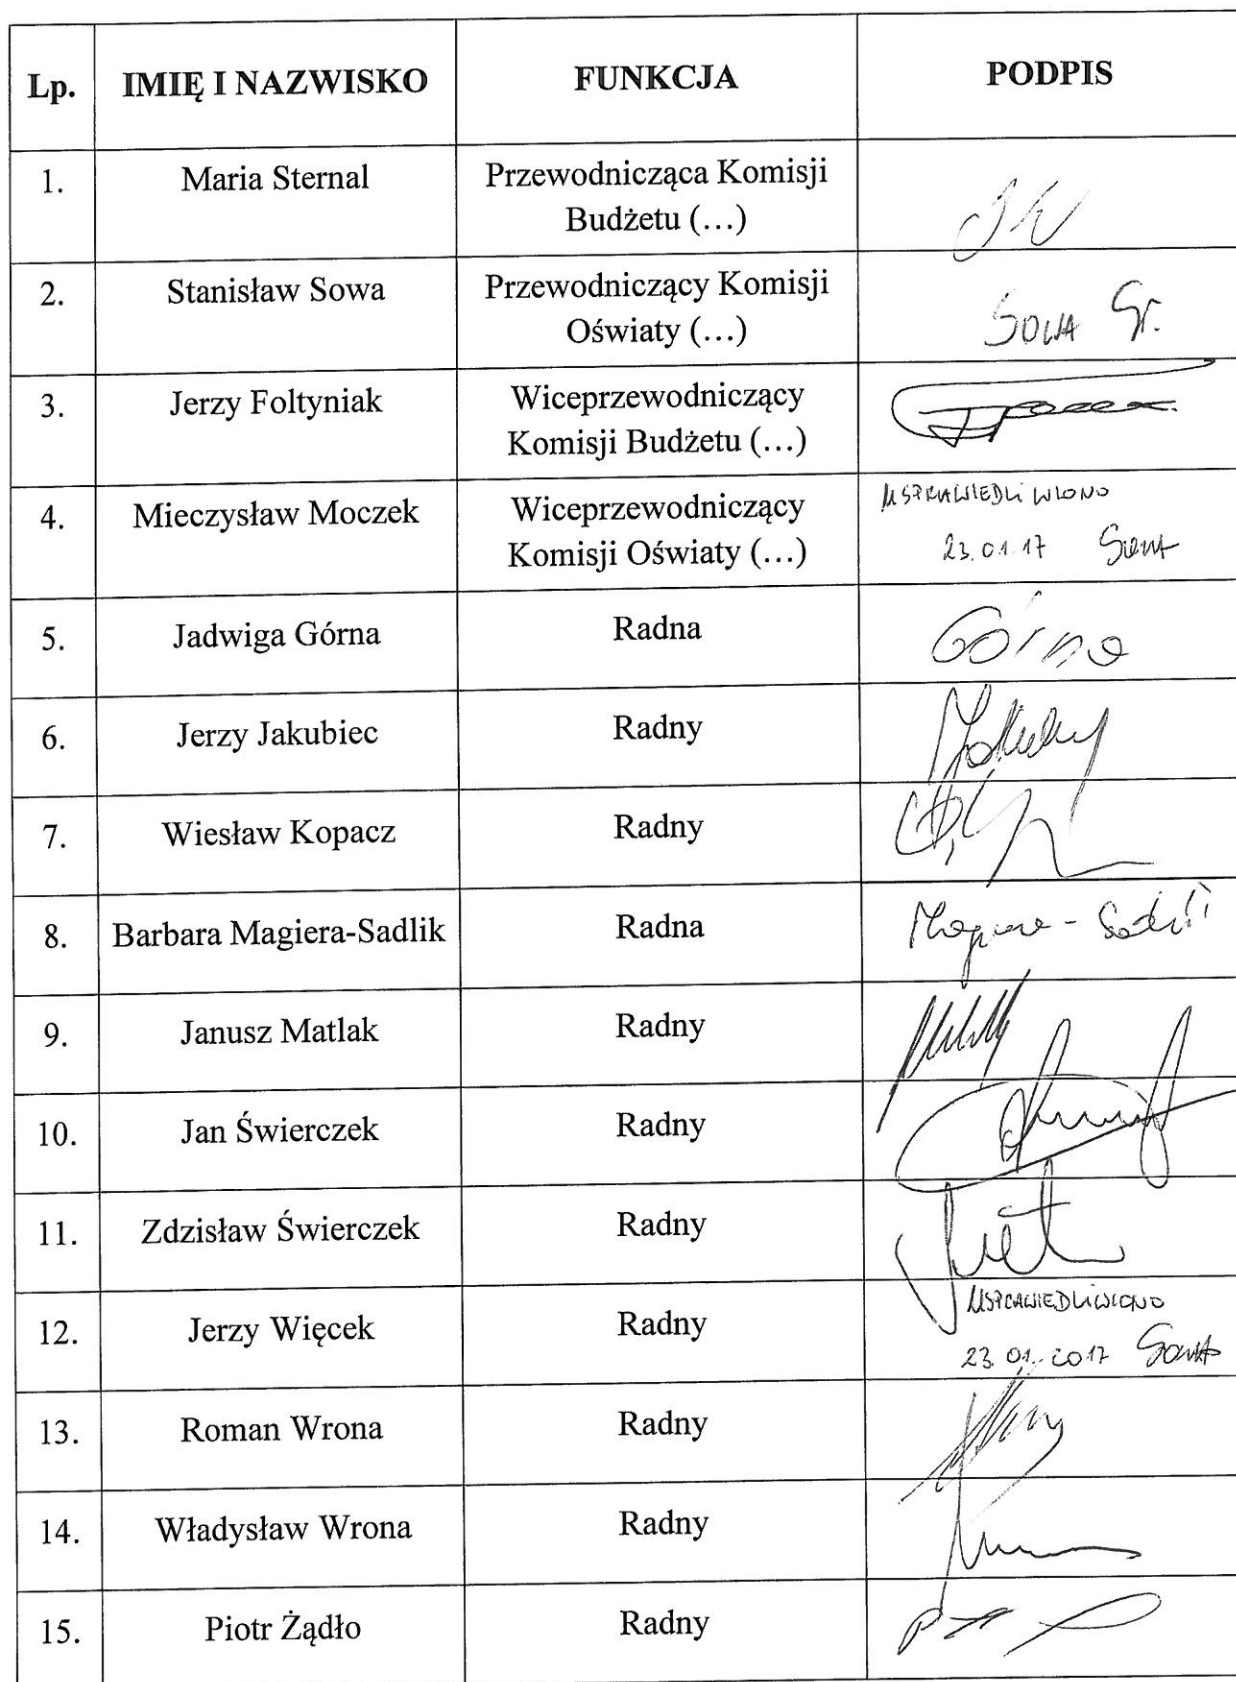 Lp. IMIĘ I NAZWISKO FUNKCJA PODPIS
1. Maria Sternal Przewodnicząca Komisji
Budżetu (…)
2. Stanisław Sowa Przewodniczący Komisji
Oświaty (…) SOWA St.
3. Jerzy Foltyniak Wiceprzewodniczący
Komisji Budżetu (…)
4. Mieczysław Moczek Wiceprzewodniczący USPRAWIEDLIWIONO
Komisji Oświaty (…) 23.01.17 Sowa
5. Jadwiga Górna Radna Górna
6. Jerzy Jakubiec Radny
7. Wiesław Kopacz Radny
8. Barbara Magiera-Sadlik Radna Magiera-Sadlik
9. Janusz Matlak Radny
10. Jan Świerczek Radny
11. Zdzisław Świerczek Radny
12. Jerzy Więcek Radny USPRAWIEDLIWIONO
23.01.2017 Sowa
13. Roman Wrona Radny
14. Władysław Wrona Radny
15. Piotr Żądło Radny